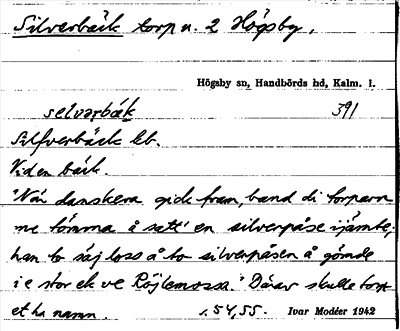 Silverbäck torp u. 2 Högsby,
Högsby sn, Handbörds hd, Kalm. l.
selvarbæk 391
Silfverbäck lb.
Vid en bäck.
"När danskera gick fram, band di torparn
me tömma å satt en silverpåse ijämte;
han to säj loss å to silverpåsen å gömde
i e stor ek ve Röjlemossa." Därav skulle torp
et ha namn. s. 54, 55. Ivar Modéer 1942